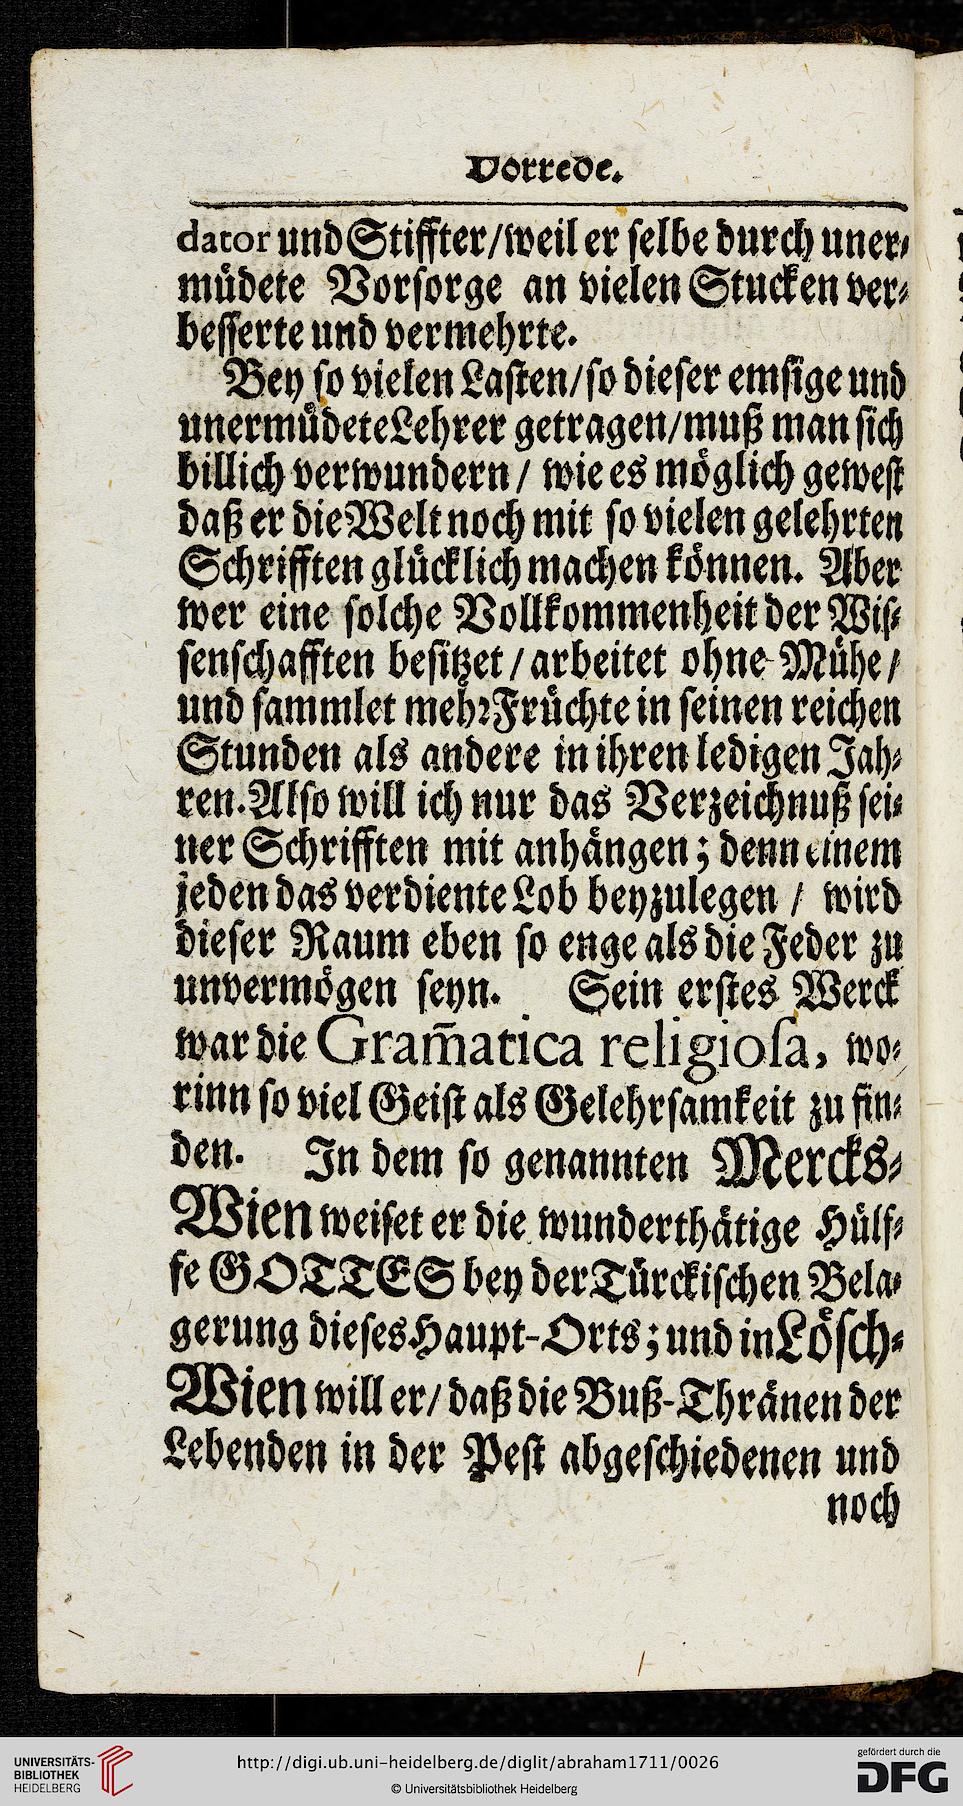 Vorrede.
dator und Stiffter/weil er selbe durch uner⸗
müdete Vorsorge an vielen Stucken ver⸗
besserte und vermehrte.
Bey so vielen Lasten/so dieser emsige und
unermüdete Lehrer getragen/muß man sich
billich verwundern / wie es möglich gewest
daß er die Welt noch mit so vielen gelehrten
Schrifften glücklich machen können. Aber
wer eine solche Vollkommenheit der Wis⸗
senschafften besitzet / arbeitet ohne Mühe /
und sammlet mehr Früchte in seinen reichen
Stunden als andere in ihren ledigen Jah⸗
ren. Also will ich nur das Verzeichnuß sei⸗
ner Schrifften mit anhängen; denn einem
jeden das verdiente Lob beyzulegen / wird
dieser Raum eben so enge als die Feder zu
unvermögen seyn. Sein erstes Werck
war die Gram̃atica religiosa, wo⸗
rinn so viel Geist als Gelehrsamkeit zu fin⸗
den. In dem so genannten Mercks⸗
Wien weiset er die wunderthätige Hülf⸗
fe GOTTES bey der Türckischen Bela⸗
gerung dieses Haupt-Orts; und in Lösch⸗
Wien will er/ daß die Buß-Thränen der
Lebenden in der Pest abgeschiedenen und
noch
UNIVERSITÄTS-
BIBLIOTHEK
HEIDELBERG
http://digi.ub.uni-heidelberg.de/diglit/abraham1711/0026
© Universitätsbibliothek Heidelberg
gefördert durch die
DFG